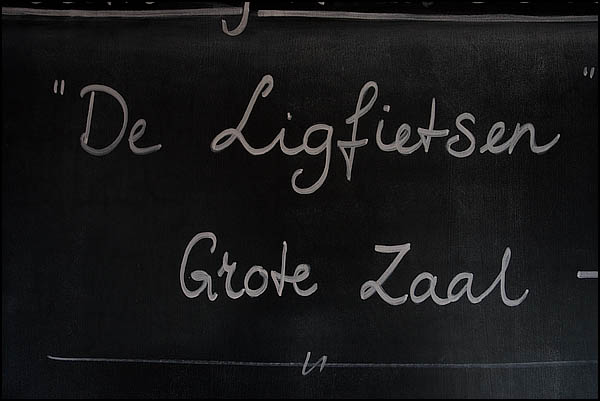 "De Ligfietsen"
Grote Zaal -